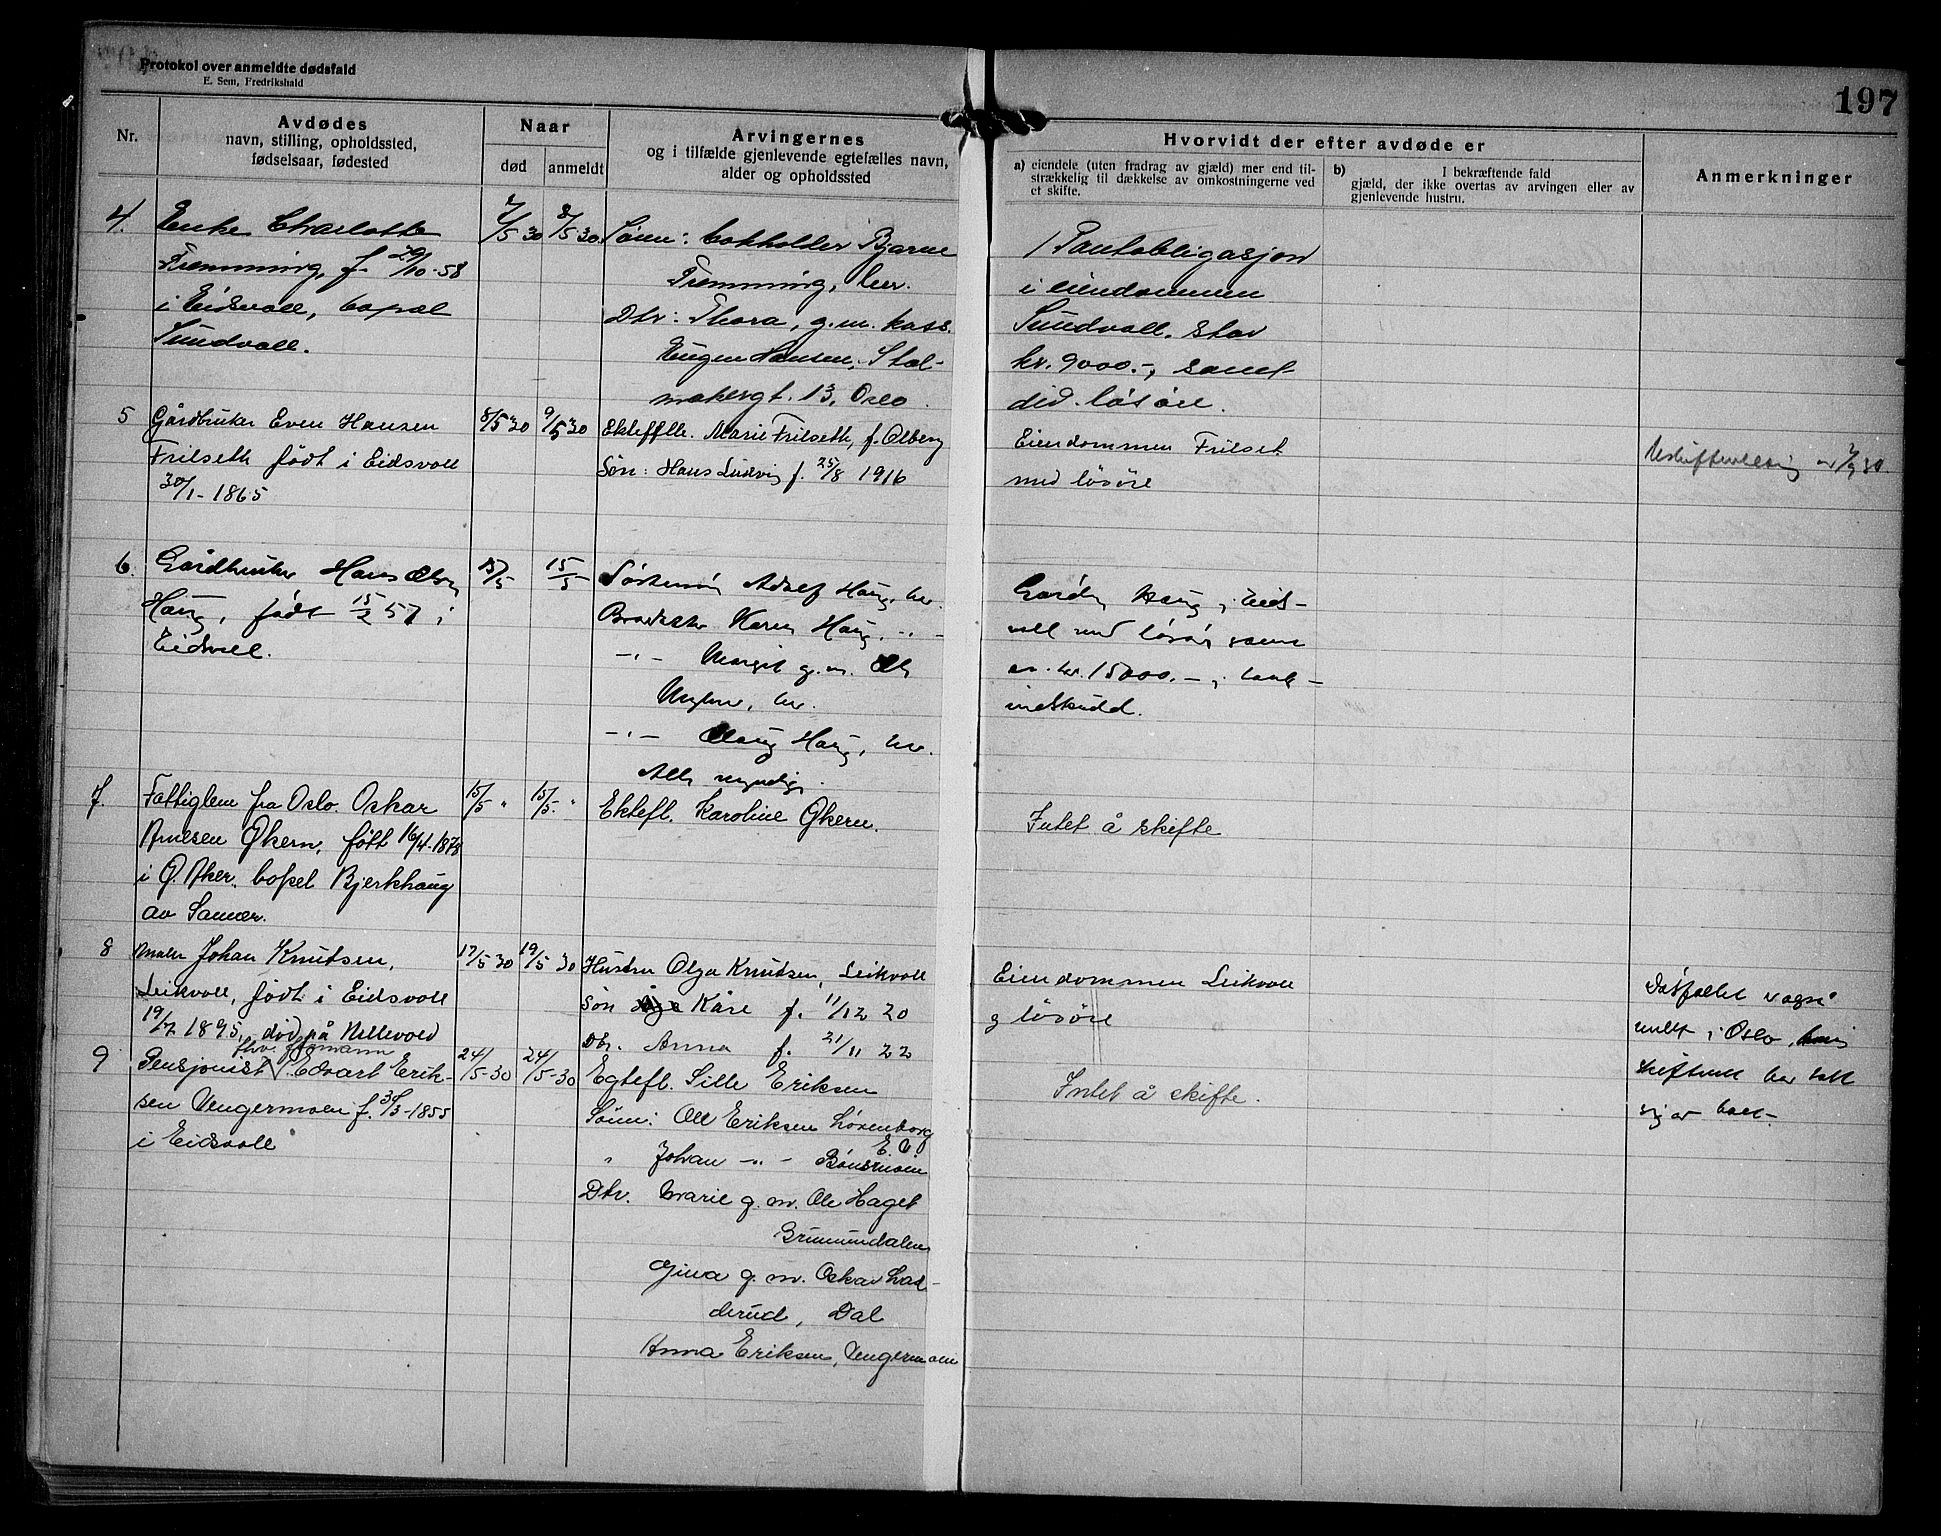 Protokol over anmeldte dødsfald
E. Sem, Fredrikshald
197
Nr.
Avdødes
navn, stilling, opholdssted,
fødselsaar, fødested
Naar
død
anmeldt
Arvingernes
og i tilfælde gjenlevende egtefælles navn,
alder og opholdssted
Hvorvidt der efter avdøde er
a) eiendele (uten fradrag av gjæld) mer end til-
strækkelig til dækkelse av omkostningerne ved
et skifte.
b) I bekræftende fald
gjæld, der ikke overtas av arvingen eller av
gjenlevende hustru.
Anmerkninger
4.
Enke Charlotte
Fremming, f. 29/10-58
i Eidsvoll, bopæl
Sundvoll.
7/5 30
8/5 30
Sønn: Bokholder Bjarne
Fremming, her.
Dtr: Thora, g.m. kass.
Eugen Hansen, Stal-
makergt. 13, Oslo.
1 Pantobligasjon
i eiendommen
Sundvoll. stor
kr. 9000.-, samt
del. løsøre.
5
Gårdbruker Even Hansen
Frilseth født i Eidsvoll
30/1-1865
8/5 30
9/5 30
Ekteflle. Marie Frilseth, f. Olberg
Søn: Hans Ludvig f. 25/8 1916
Eiendommen Frilset
med løsøre
6.
Gårdbruker Hans Olsen
Haug, født 15/2 57 i
Eidsvoll.
15/5
15/5
Adolf Haug, her.
Karen Haug, -"-
-"- Margit g.m. Ole
her.
-"- Haug, her.
Alle myndige.
Gården Haug i Eids-
voll med løsøre samt
ca. kr. 15000.- i bank-
indskudd.
7.
Fattiglem fra Oslo. Oskar
Arnesen Økern, født 16/4-1878
i Ø. Aker, bopel Bjerkhaug
av
15/5 "
15/5. "
Ektefl. Karoline Økern.
Intet å skifte
8
Maler Johan Knutsen,
Leikvoll, født i Eidsvoll
19/7 1895, død på Ullevold
17/5 30
19/5 30
Hustru Olga Knutsen, Leikvoll
Søn Kåre f. 11/12 20
Dtr. Anna f. 21/11 22
Eiendommen Leikvoll
og løsøre
Dødsfallet er også
meldt i Oslo, hvis
skifterett har tatt
sig av boet.
9
Pensjonist Edvart Erik-
sen Ungermoen f. 30/3-1855
i Eidsvoll
24/5-30
24/5-30
Egtefl. Sille Eriksen
Sønn: Ole Eriksen Lovenborg
E.V.
" Johan -"- Bønsmoen
Dtr. Marie g.m. Ole Haget
Grimundalen
Gina g.m. Oskar Lad-
derud, Dal
Anna Eriksen, Ungermoen
Intet å skifte.